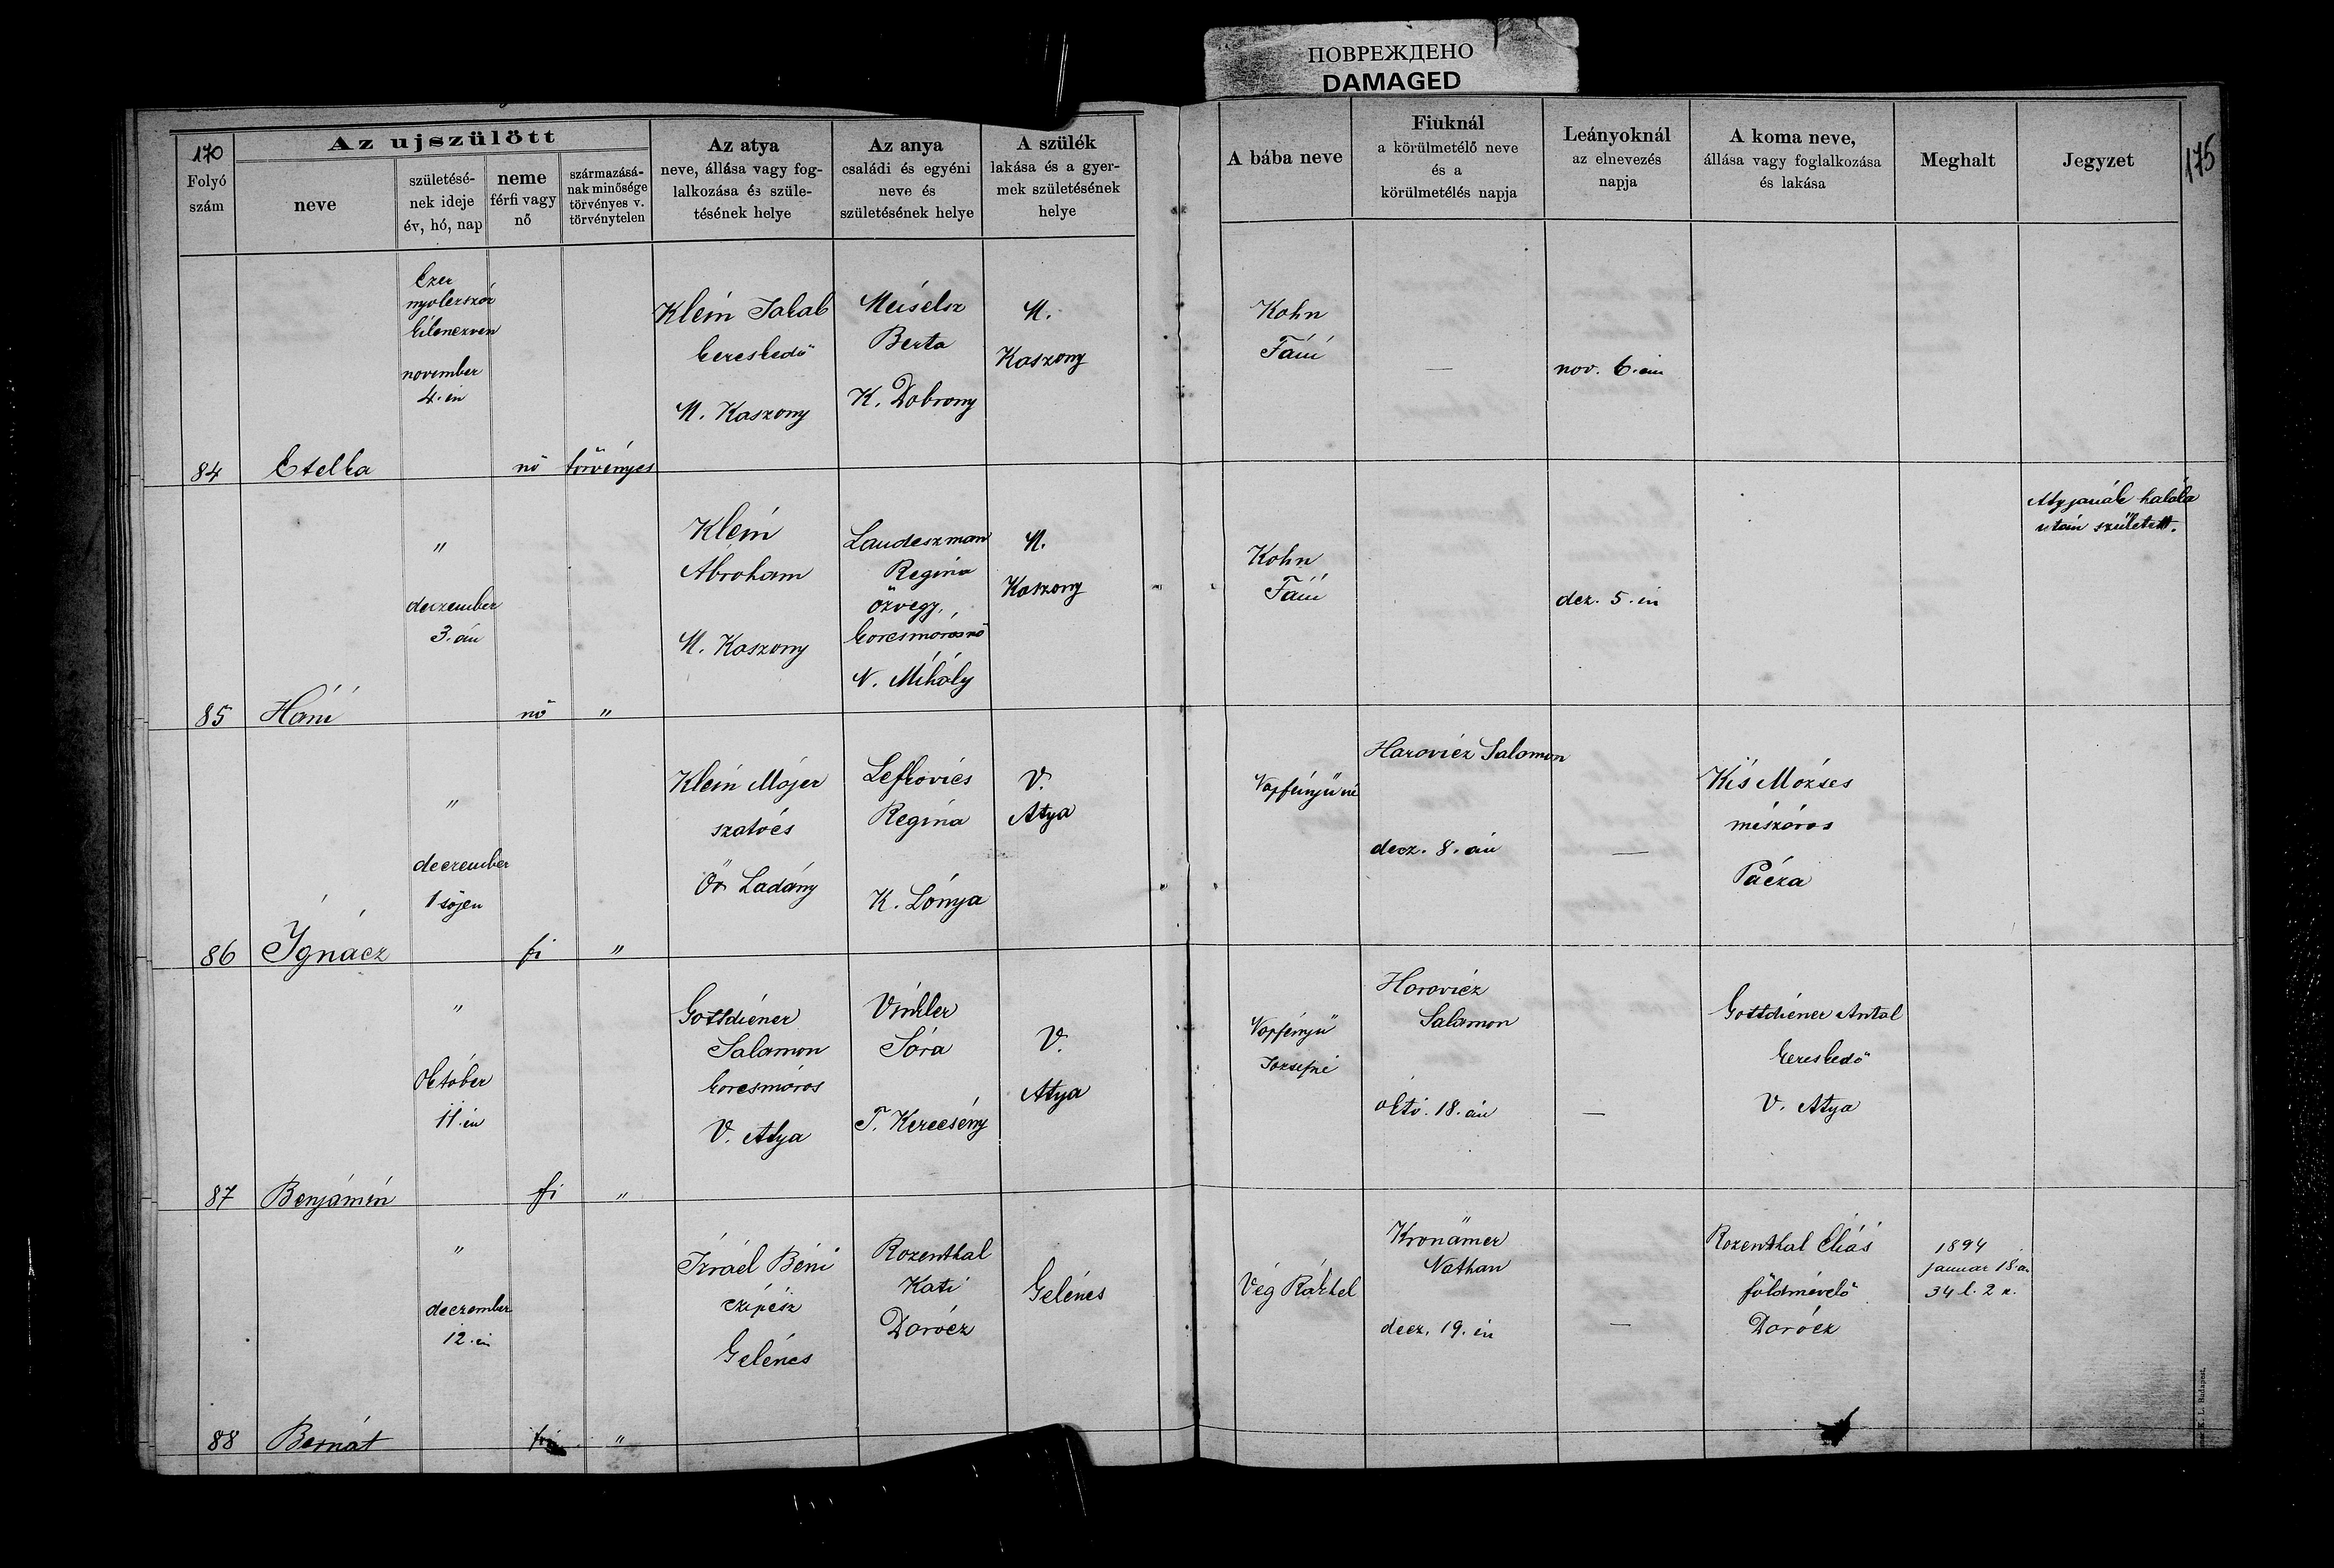 ПОВРЕЖДЕНО
DAMAGED
170
Folyó
szám
Az ujszülött
neve
születésé-
nek ideje
év, hó, nap
neme
férfi vagy
nő
származásá-
nak minősége
törvényes v.
törvénytelen
Az atya
neve, állása vagy fog-
lalkozása és szüle-
tésének helye
Az anya
családi és egyéni
neve és
születésének helye
A szülék
lakása és a gyer-
mek születésének
helye
A bába neve
Fiuknál
a körülmetélő neve
és a
körülmetélés napja
Leányoknál
az elnevezés
napja
A koma neve,
állása vagy foglalkozása
és lakása
Meghalt
Jegyzet
175
84
Etelka
Ezer
nyolczszáz
kilenczven
november
4. én
nő
törvényes
Klein Jakab
kereskedő
M. Kaszony
Meiselsz
Berta
K. Dobrony
M.
Kaszony
Kohn
Fáni
—
nov. 6. án
85
Háni
"
deczember
3. án
nő
"
Klein
Ábrahám
M. Kaszony
Landeszman
Regina
özvegy,
korcsmárosnő
N. Mihály
M.
Kaszony
Kohn
Fáni
dez. 5. én
Atyjának halála
után született.
86
Ignácz
"
deczember
1 sőjen
fi
"
Klein Májer
szatócs
Őr Ladány
Lefkovics
Regina
K. Lónya
V.
Atya
Harovicz Salamon
decz. 8. án
—
Kis Mózses
mészáros
Pácza
87
Benjámin
"
Október
11. én
fi
"
Gottdiener
Salamon
korcsmáros
V. Atya
Vinkler
Sára
T. Kerecsény
V.
Atya
Napfényű
Józsefné
Horovicz
Salamon
októ. 18. án
—
Gottdiener Antal
kereskedő
V. Atya
88
Bernát
"
deczember
12. én
"
Izráel Béni
czipész
Gelénes
Rozenthal
Kati
Darócz
Gelénes
Vég Ráchel
Kronämer
Nathan
decz. 19. én
—
Rozenthal Éliás
földmivelő
Darócz
1894
januar 18. án
34 l. 2 n.
K. L. Budapest.